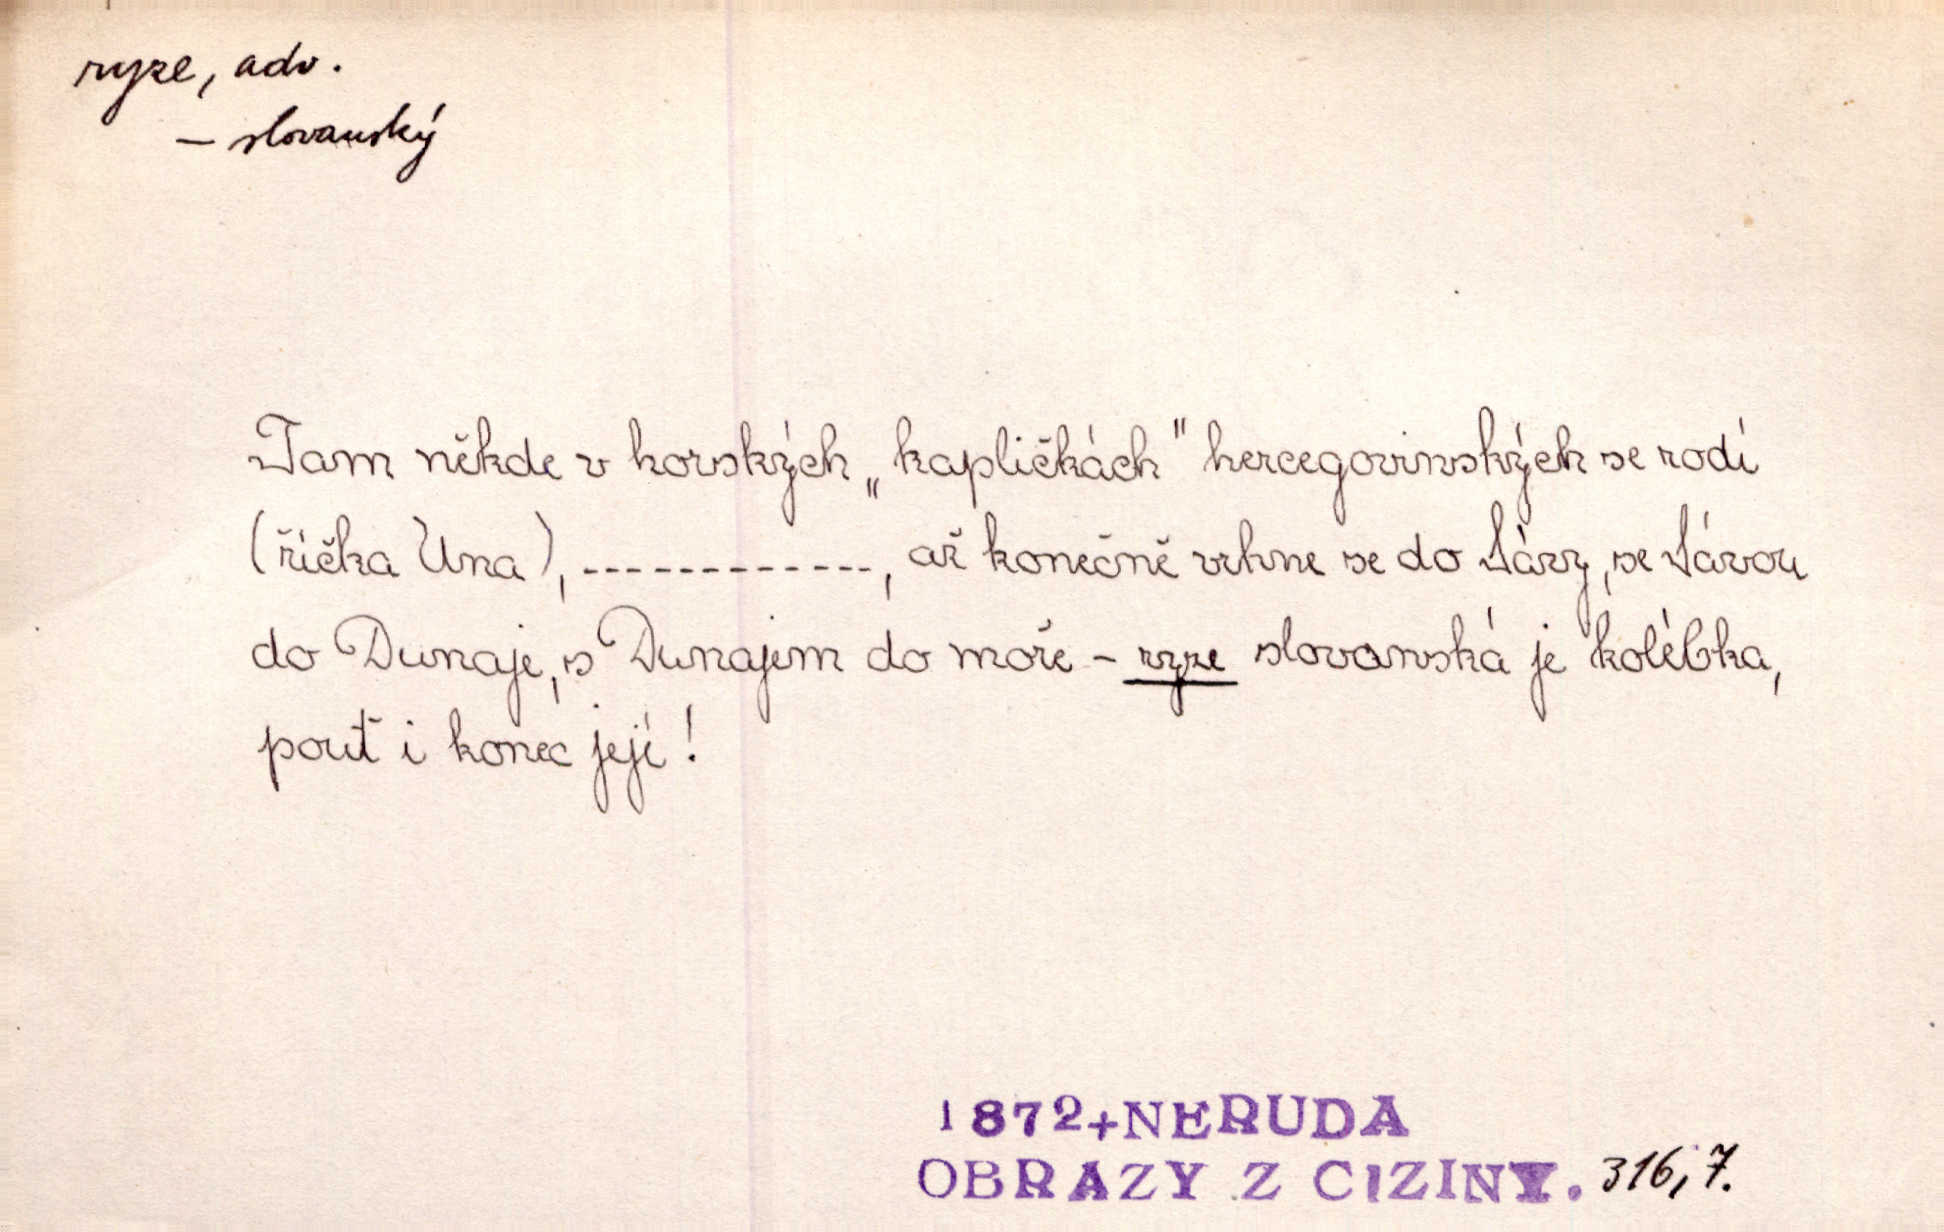 ryze, adv.
– slovanský
Tam někde v horských „kapličkách" hercegovinských se rodí
(říčka Una), ------------, až konečně vrhne se do Sávy, se Sávou
do Dunaje, s Dunajem do moře – ryze slovanská je kolébka,
pouť i konec její!
1872+NERUDA
OBRAZY Z CIZINY. 316,7.